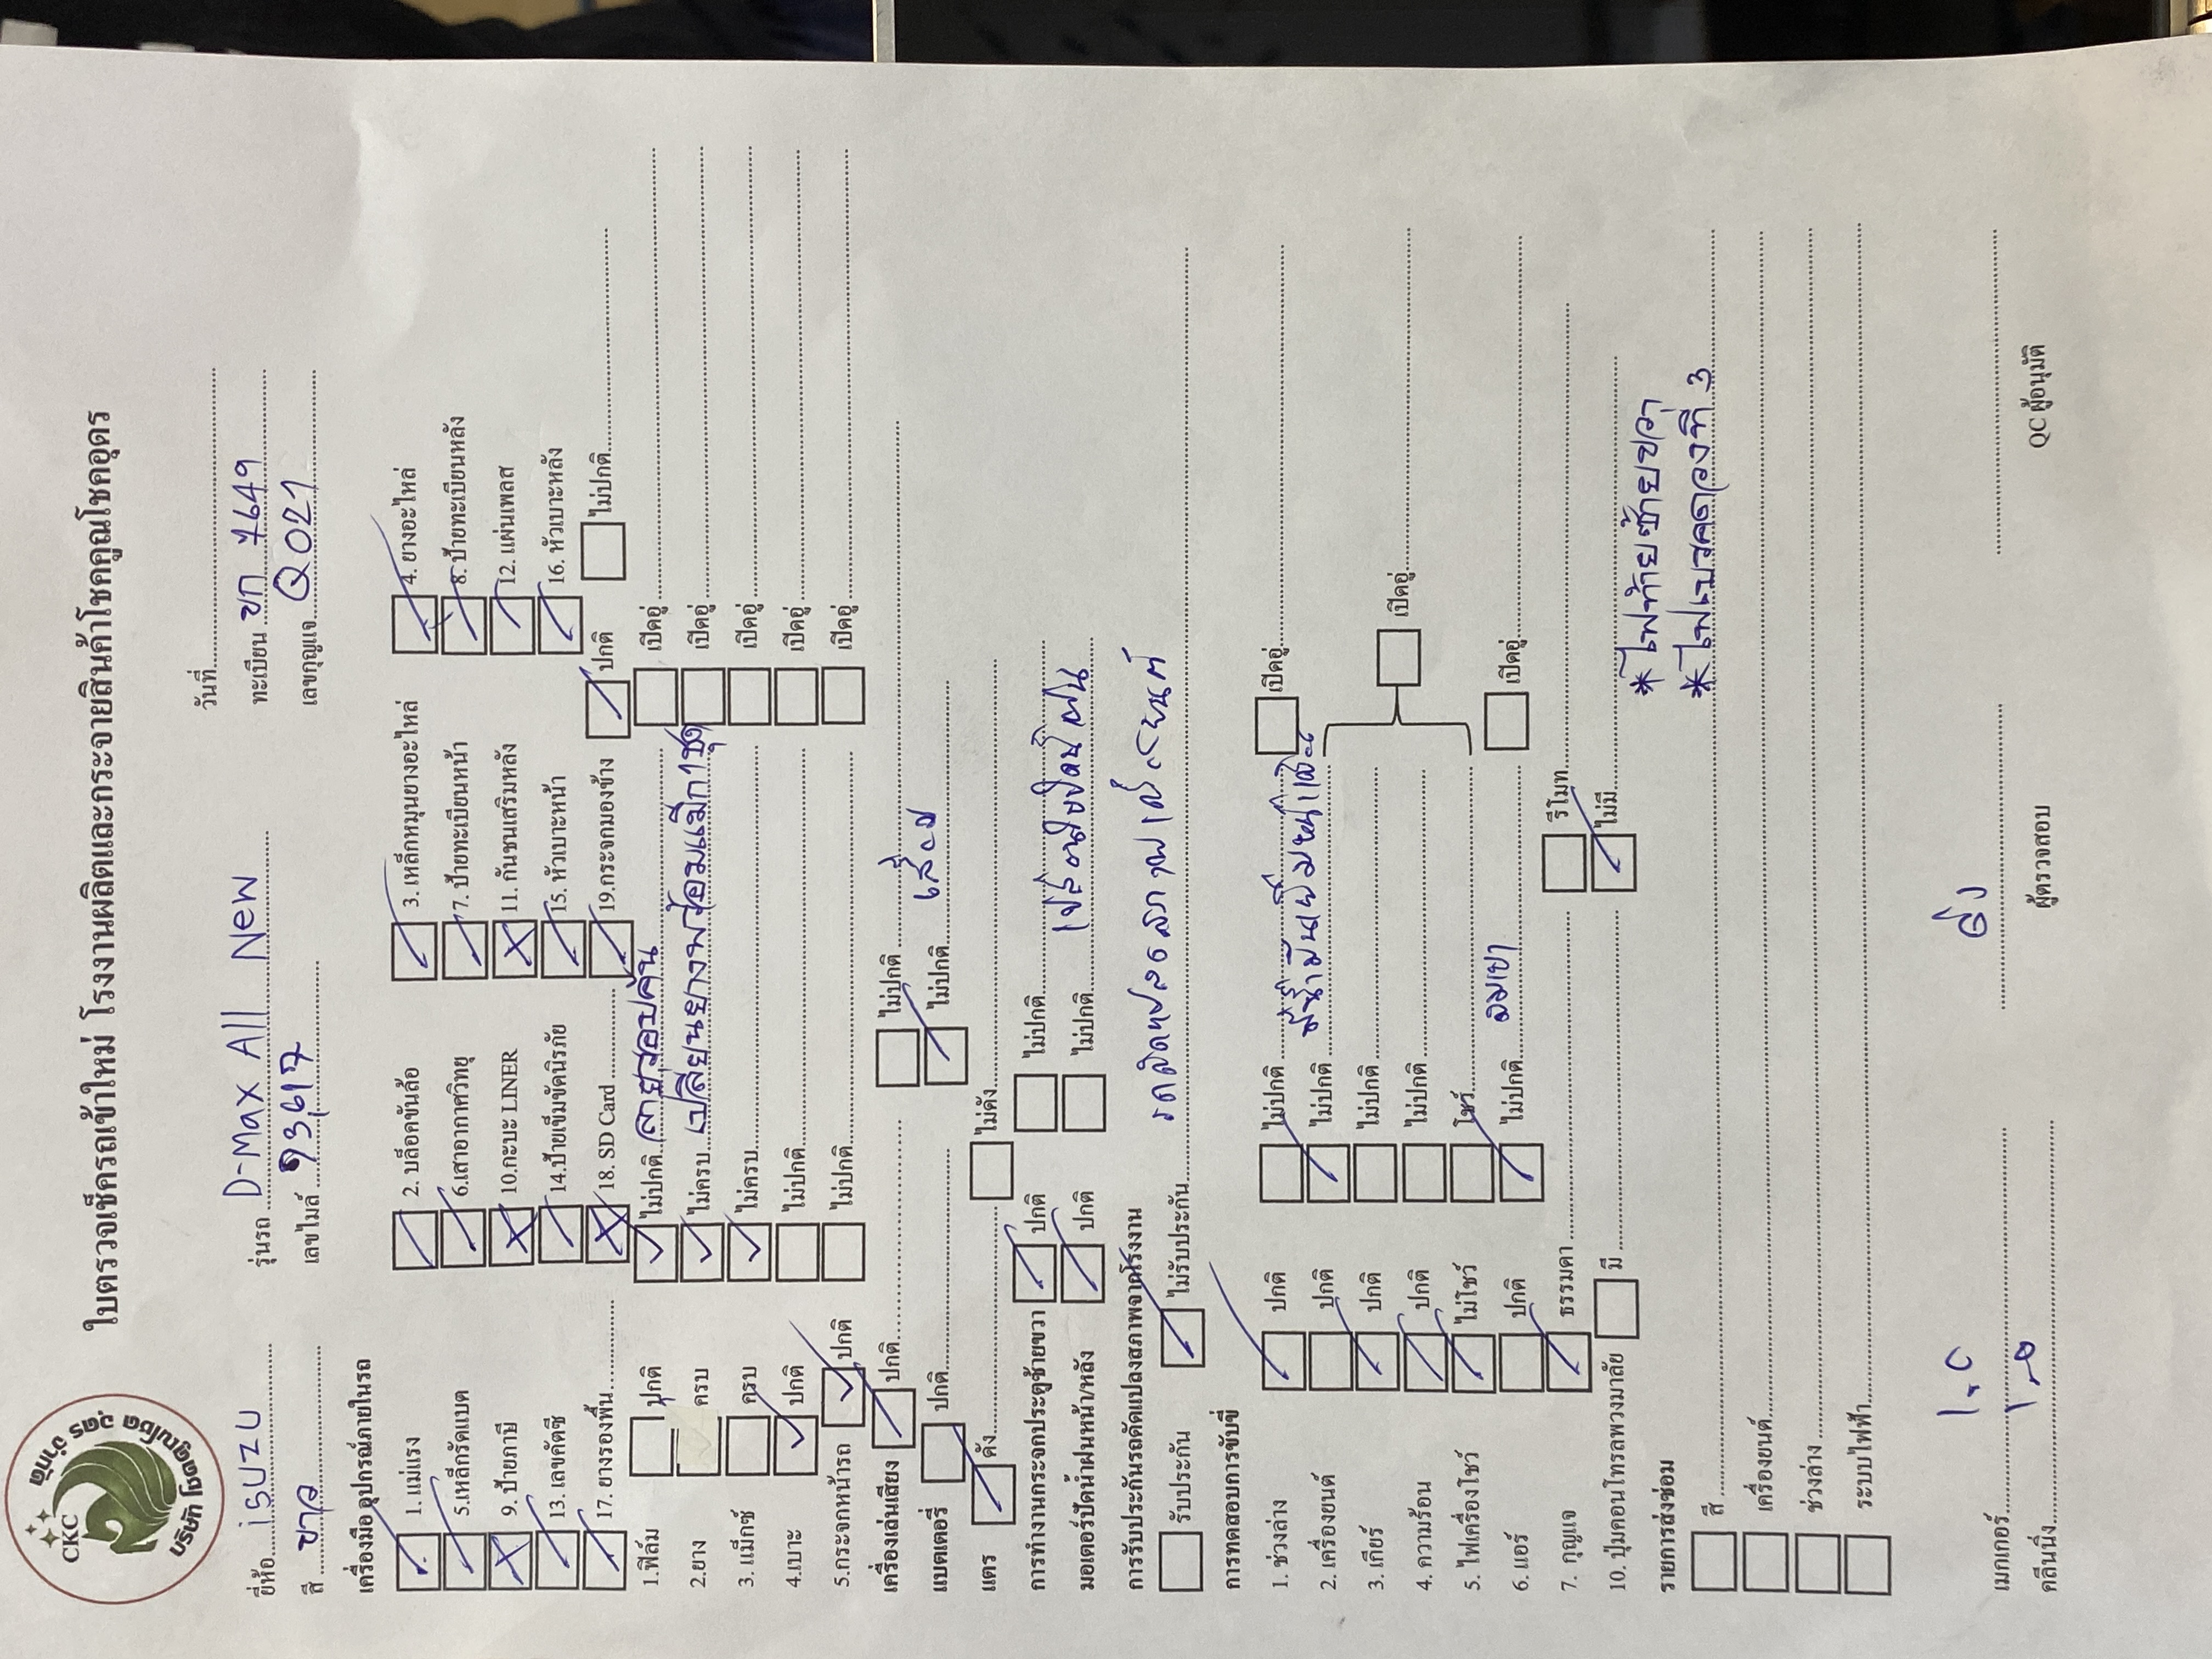 CKC
บริษัท โชคคูณโชค อุดร จำกัด
ใบตรวจเช็ครถเข้าใหม่ โรงงานผลิตและกระจายสินค้าโชคคูณโชคอุดร
วันที่
ยี่ห้อ isuzu รุ่นรถ D-Max All New ทะเบียน ขก 7649
สี ขาว เลขไมล์ 93,617 เลขกุญแจ Q021
เครื่องมือ อุปกรณ์ภายในรถ
1. แม่แรง 2. บล็อคขันล้อ 3. เหล็กหมุนยางอะไหล่ 4. ยางอะไหล่
5.เหล็กรัดแบต 6.เสาอากาศวิทยุ 7. ป้ายทะเบียนหน้า 8. ป้ายทะเบียนหลัง
9. ป้ายภาษี 10.กะบะ LINER 11. กันชนเสริมหลัง 12. แผ่นเพลส
13. เลขคัตซี 14.ป้ายเข็มขัดนิรภัย 15. หัวเบาะหน้า 16. หัวเบาะหลัง
17. ยางรองพื้น 18. SD Card 19.กระจกมองข้าง ปกติ ไม่ปกติ
1.ฟิล์ม ปกติ ไม่ปกติ ลายรอบคัน เปิดอู่
2.ยาง ครบ ไม่ครบ เปลี่ยนยางพร้อมแม็กาชุด เปิดอู่
3. แม็กซ์ ครบ ไม่ครบ เปิดอู่
4.เบาะ ปกติ ไม่ปกติ เปิดอู่
5.กระจกหน้ารถ ปกติ ไม่ปกติ เปิดอู่
เครื่องเล่นเสียง ปกติ ไม่ปกติ
แบตเตอรี่ ปกติ ไม่ปกติ เสื่อม
แตร ดัง ไม่ดัง
การทำงานกระจกประตูซ้ายขวา ปกติ ไม่ปกติ
มอเตอร์ปัดน้ำฝนหน้า/หลัง ปกติ ไม่ปกติ
การรับประกันรถดัดแปลงสภาพจากโรงงาน
รับประกัน ไม่รับประกัน
การทดสอบการขับขี่
1. ช่วงล่าง ปกติ ไม่ปกติ เปิดอู่
2. เครื่องยนต์ ปกติ ไม่ปกติ
3. เกียร์ ปกติ ไม่ปกติ
4. ความร้อน ปกติ ไม่ปกติ เปิดอู่
5. ไฟเครื่องโชว์ ไม่โชว์ โชว์
6. แอร์ ปกติ ไม่ปกติ ลมเบา เปิดอู่
7. กุญแจ ธรรมดา รีโมท
10. ปุ่มคอนโทรลพวงมาลัย มี ไม่มี
รายการส่งซ่อม
* ไฟท้ายซ้ายขวา
สี * ไฟเบรคดวงที่ 3
เครื่องยนต์
ช่วงล่าง
ระบบไฟฟ้า
เมกเกอร์
คลีนนิ่ง ผู้ตรวจสอบ QC ผู้อนุมัติ